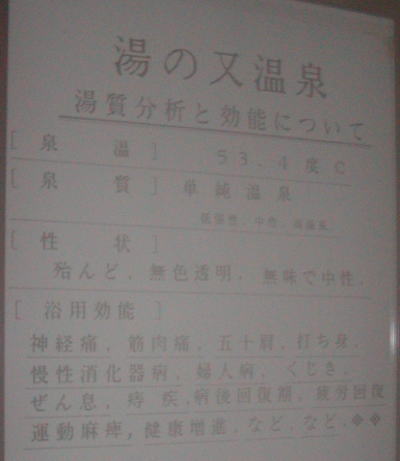 湯の又温泉
湯質分析と効能について
[ 泉 温 ] 53.4度C
[ 泉 質 ] 単純温泉
低張性、中性、高温泉
[ 性 状 ]
殆んど、無色透明、無味で中性、
[ 浴用効能 ]
神経痛、筋肉痛、五十肩、打ち身、
慢性消化器病、婦人病、くじき、
ぜん息、痔疾、病後回復期、疲労回復
運動麻痺,健康増進、など、など、❖❖